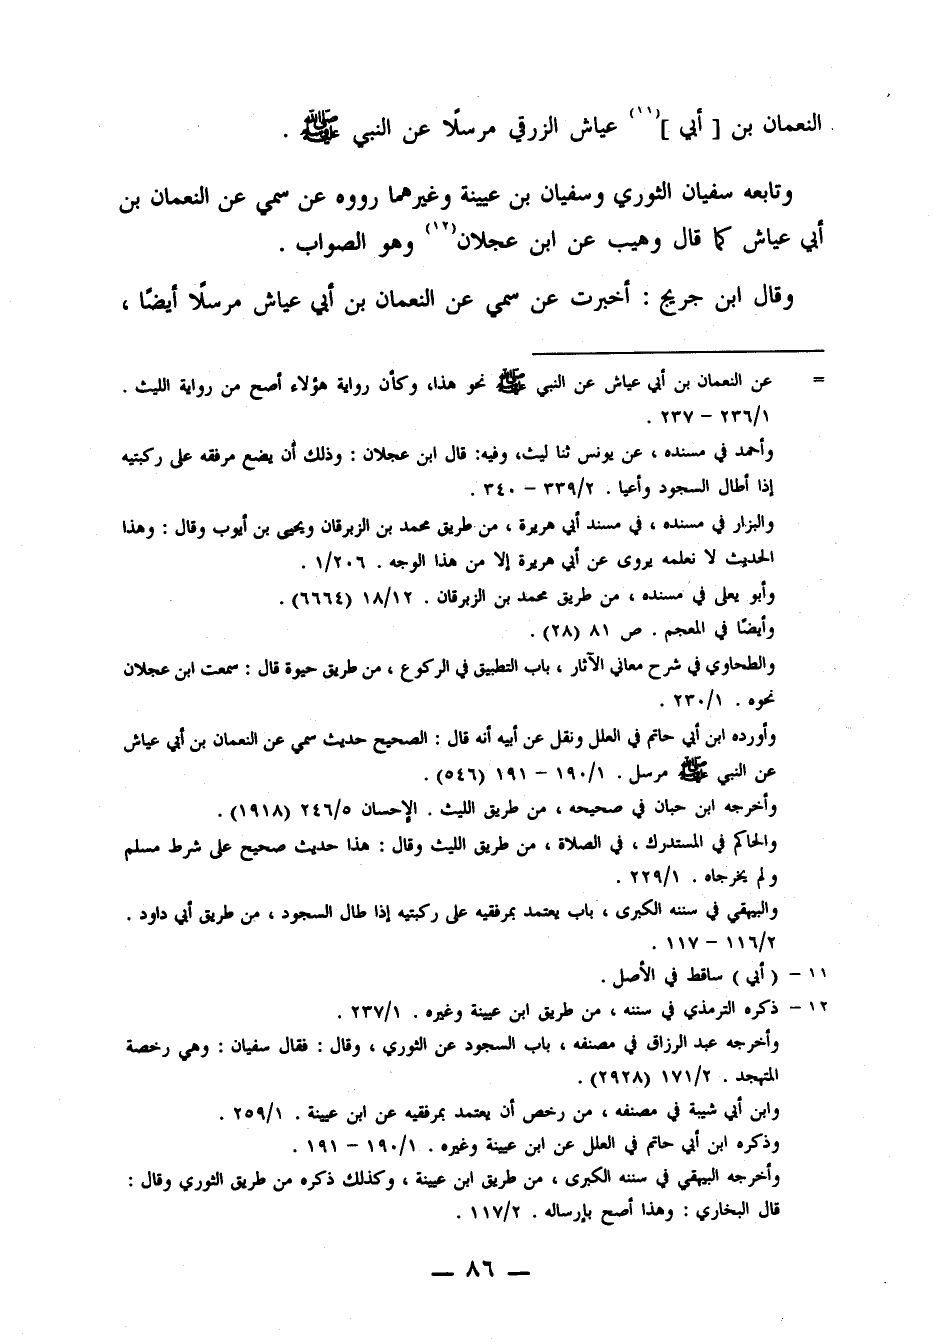 النعمان بن [ أبي ](١١) عياش الزرقي مرسلًا عن النبي ﷺ .
وتابعه سفيان الثوري وسفيان بن عيينة وغيرهما رووه عن سمي عن النعمان بن
أبي عياش كما قال وهيب عن ابن عجلان(١٢) وهو الصواب .
وقال ابن جريج : أخبرت عن سمي عن النعمان بن أبي عياش مرسلًا أيضًا ،
= عن النعمان بن أبي عياش عن النبي ﷺ نحو هذا، وكأن رواية هؤلاء أصح من رواية الليث .
٢٣٦/١ – ٢٣٧ .
وأحمد في مسنده ، عن يونس ثنا ليث، وفيه: قال ابن عجلان : وذلك أن يضع مرفقه على ركبتيه
إذا أطال السجود وأعيا . ٣٣٩/٢ – ٣٤٠ .
والبزار في مسنده ، في مسند أبي هريرة ، من طريق محمد بن الزبرقان ويحيى بن أيوب وقال : وهذا
الحديث لا نعلمه يروى عن أبي هريرة إلا من هذا الوجه . ١/٢٠٦ .
وأبو يعلى في مسنده ، من طريق محمد بن الزبرقان . ١٨/١٢ (٦٦٦٤) .
وأيضًا في المعجم . ص ٨١ (٢٨) .
والطحاوي في شرح معاني الآثار ، باب التطبيق في الركوع ، من طريق حيوة قال : سمعت ابن عجلان
نحوه . ٢٣٠/١ .
وأورده ابن أبي حاتم في العلل ونقل عن أبيه أنه قال : الصحيح حديث سمي عن النعمان بن أبي عياش
عن النبي ﷺ مرسل . ١٩٠/١ – ١٩١ (٥٤٦) .
وأخرجه ابن حبان في صحيحه ، من طريق الليث . الإحسان ٢٤٦/٥ (١٩١٨) .
والحاكم في المستدرك ، في الصلاة ، من طريق الليث وقال : هذا حديث صحيح على شرط مسلم
ولم يخرجاه . ٢٢٩/١ .
والبيهقي في سننه الكبرى ، باب يعتمد بمرفقيه على ركبتيه إذا طال السجود ، من طريق أبي داود .
١١٦/٢ – ١١٧ .
١١ – ( أبي ) ساقط في الأصل .
١٢ – ذكره الترمذي في سننه ، من طريق ابن عيينة وغيره . ٢٣٧/١ .
وأخرجه عبد الرزاق في مصنفه ، باب السجود عن الثوري ، وقال : فقال سفيان : وهي رخصة
المتهجد . ١٧١/٢ (٢٩٢٨) .
وابن أبي شيبة في مصنفه ، من رخص أن يعتمد بمرفقيه عن ابن عيينة . ٢٥٩/١ .
وذكره ابن أبي حاتم في العلل عن ابن عيينة وغيره . ١٩٠/١ – ١٩١ .
وأخرجه البيهقي في سننه الكبرى ، من طريق ابن عيينة ، وكذلك ذكره من طريق الثوري وقال :
قال البخاري : وهذا أصح بإرساله . ١١٧/٢ .
— ٨٦ —